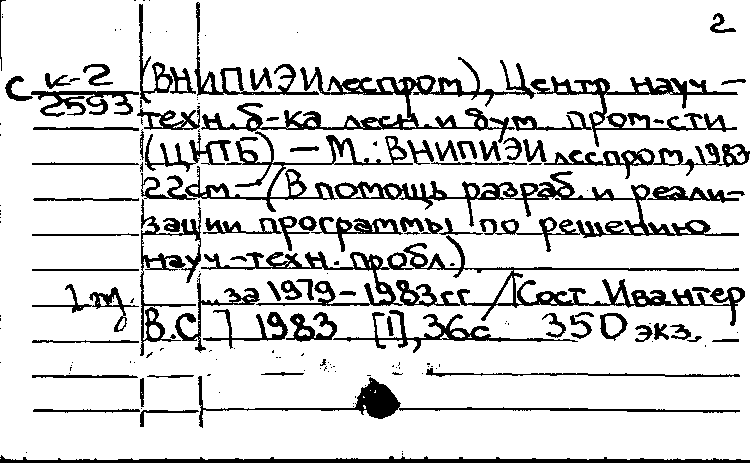 2
С к-2 (ВНИПИЭИлеспром), Центр науч-
2593 техн. б-ка лесн. и бум. пром-сти
(ЦНТБ) — М.: ВНИПИЭИлеспром, 1983
22см.—(В помощь разраб. и реали-
зации программы по решению
науч.-техн. пробл.)
...за 1979–1983гг /[Сост. Ивантер
В.С.] 1983. [1], 36с 350 экз.